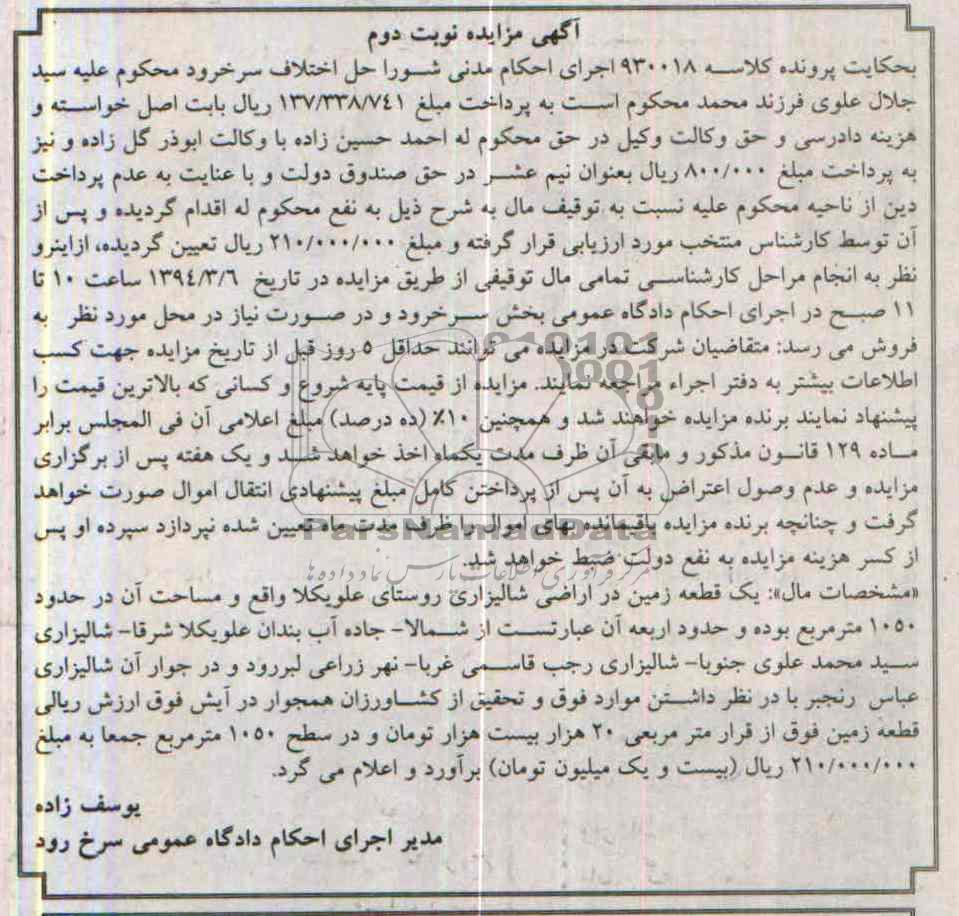 آگهی مزایده نوبت دوم
بحکایت پرونده کلاسه ۹۳۰۰۱۸ اجرای احکام مدنی شورا حل اختلاف سرخرود محکوم علیه سید
جلال علوی فرزند محمد محکوم است به پرداخت مبلغ ۱۳۷/۳۳۸/۷٤۱ ریال بابت اصل خواسته و
هزینه دادرسی و حق وکالت وکیل در حق محکوم له احمد حسین زاده با وکالت ابوذر گل زاده و نیز
به پرداخت مبلغ ۸۰۰/۰۰۰ ریال بعنوان نیم عشر در حق صندوق دولت و با عنایت به عدم پرداخت
دین از ناحیه محکوم علیه نسبت به توقیف مال به شرح ذیل به نفع محکوم له اقدام گردیده و پس از
آن توسط کارشناس منتخب مورد ارزیابی قرار گرفته و مبلغ ۲۱۰/۰۰۰/۰۰۰ ریال تعیین گردیده، ازاینرو
نظر به انجام مراحل کارشناسی تمامی مال توقیفی از طریق مزایده در تاریخ ۱۳۹٤/۳/٦ ساعت ۱۰ تا
۱۱ صبح در اجرای احکام دادگاه عمومی بخش سرخرود و در صورت نیاز در محل مورد نظر به
فروش می رسد: متقاضیان شرکت در مزایده می توانند حداقل ۵ روز قبل از تاریخ مزایده جهت کسب
اطلاعات بیشتر به دفتر اجراء مراجعه نمایند. مزایده از قیمت پایه شروع و کسانی که بالاترین قیمت را
پیشنهاد نمایند برنده مزایده خواهند شد و همچنین ۱۰٪ (ده درصد) مبلغ اعلامی آن فی المجلس برابر
ماده ۱۲۹ قانون مذکور و مابقی آن ظرف مدت یکماه اخذ خواهد شد و یک هفته پس از برگزاری
مزایده و عدم وصول اعتراض به آن پس از پرداختن کامل مبلغ پیشنهادی انتقال اموال صورت خواهد
گرفت و چنانچه برنده مزایده باقیمانده بهای اموال را ظرف مدت ماه تعیین شده نپردازد سپرده او پس
ParsNamadData
از کسر هزینه مزایده به نفع دولت ضبط خواهد شد.
مرکز فرآوری اطلاعات پارس نماد داده ها
«مشخصات مال»: یک قطعه زمین در اراضی شالیزاری روستای علویکلا واقع و مساحت آن در حدود
۱۰۵۰ مترمربع بوده و حدود اربعه آن عبارتست از شمالا- جاده آب بندان علویکلا شرقا- شالیزاری
سید محمد علوی جنوبا- شالیزاری رجب قاسمی غربا- نهر زراعی لبررود و در جوار آن شالیزاری
عباس رنجبر با در نظر داشتن موارد فوق و تحقیق از کشاورزان همجوار در آیش فوق ارزش ریالی
قطعه زمین فوق از قرار متر مربعی ۲۰ هزار بیست هزار تومان و در سطح ۱۰۵۰ مترمربع جمعا به مبلغ
۲۱۰/۰۰۰/۰۰۰ ریال (بیست و یک میلیون تومان) برآورد و اعلام می گرد.
یوسف زاده
مدیر اجرای احکام دادگاه عمومی سرخ رود